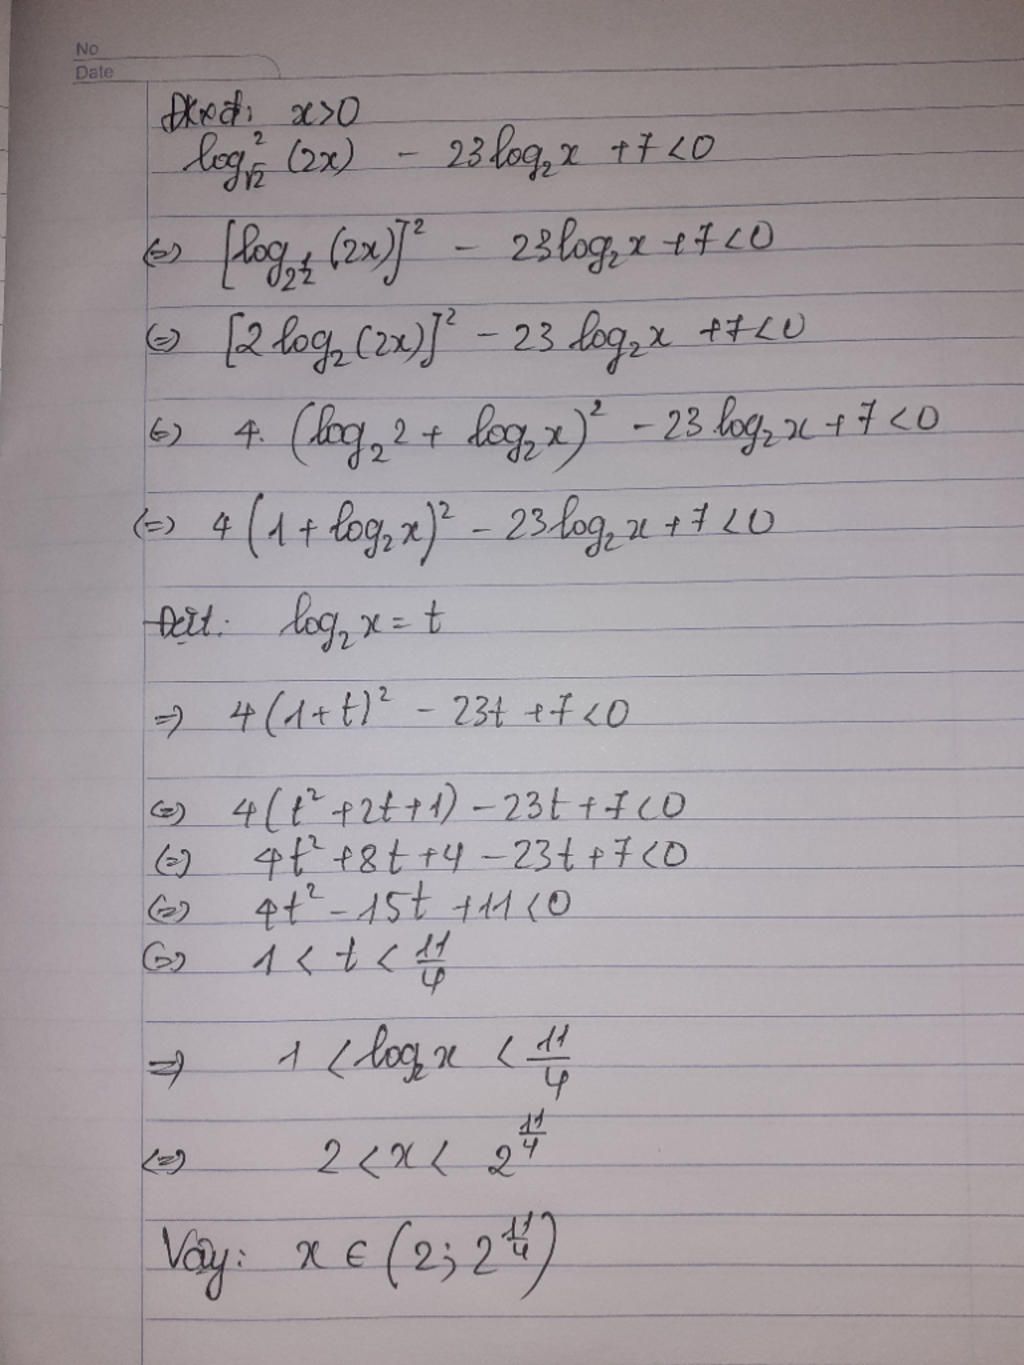 No
Date
Đkxđ: x>0
log²_√2 (2x) - 23log₂x +7<0
(=) [log_2^½ (2x)]² - 23log₂x +7<0
(=) [2 log₂(2x)]² - 23 log₂x +7<0
(=) 4. (log₂2 + log₂x)² - 23 log₂x +7<0
(=) 4(1 + log₂x)² - 23log₂x +7<0
Đặt: log₂x = t
=) 4(1+t)² - 23t +7<0
(=) 4(t² +2t+1) - 23t +7<0
(=) 4t² +8t +4 - 23t +7<0
(=) 4t² - 15t +11<0
(=) 1 < t < 11/4
=) 1 < log₂x < 11/4
(=) 2 < x < 2^(11/4)
Vậy: x ∈ (2; 2^(11/4))